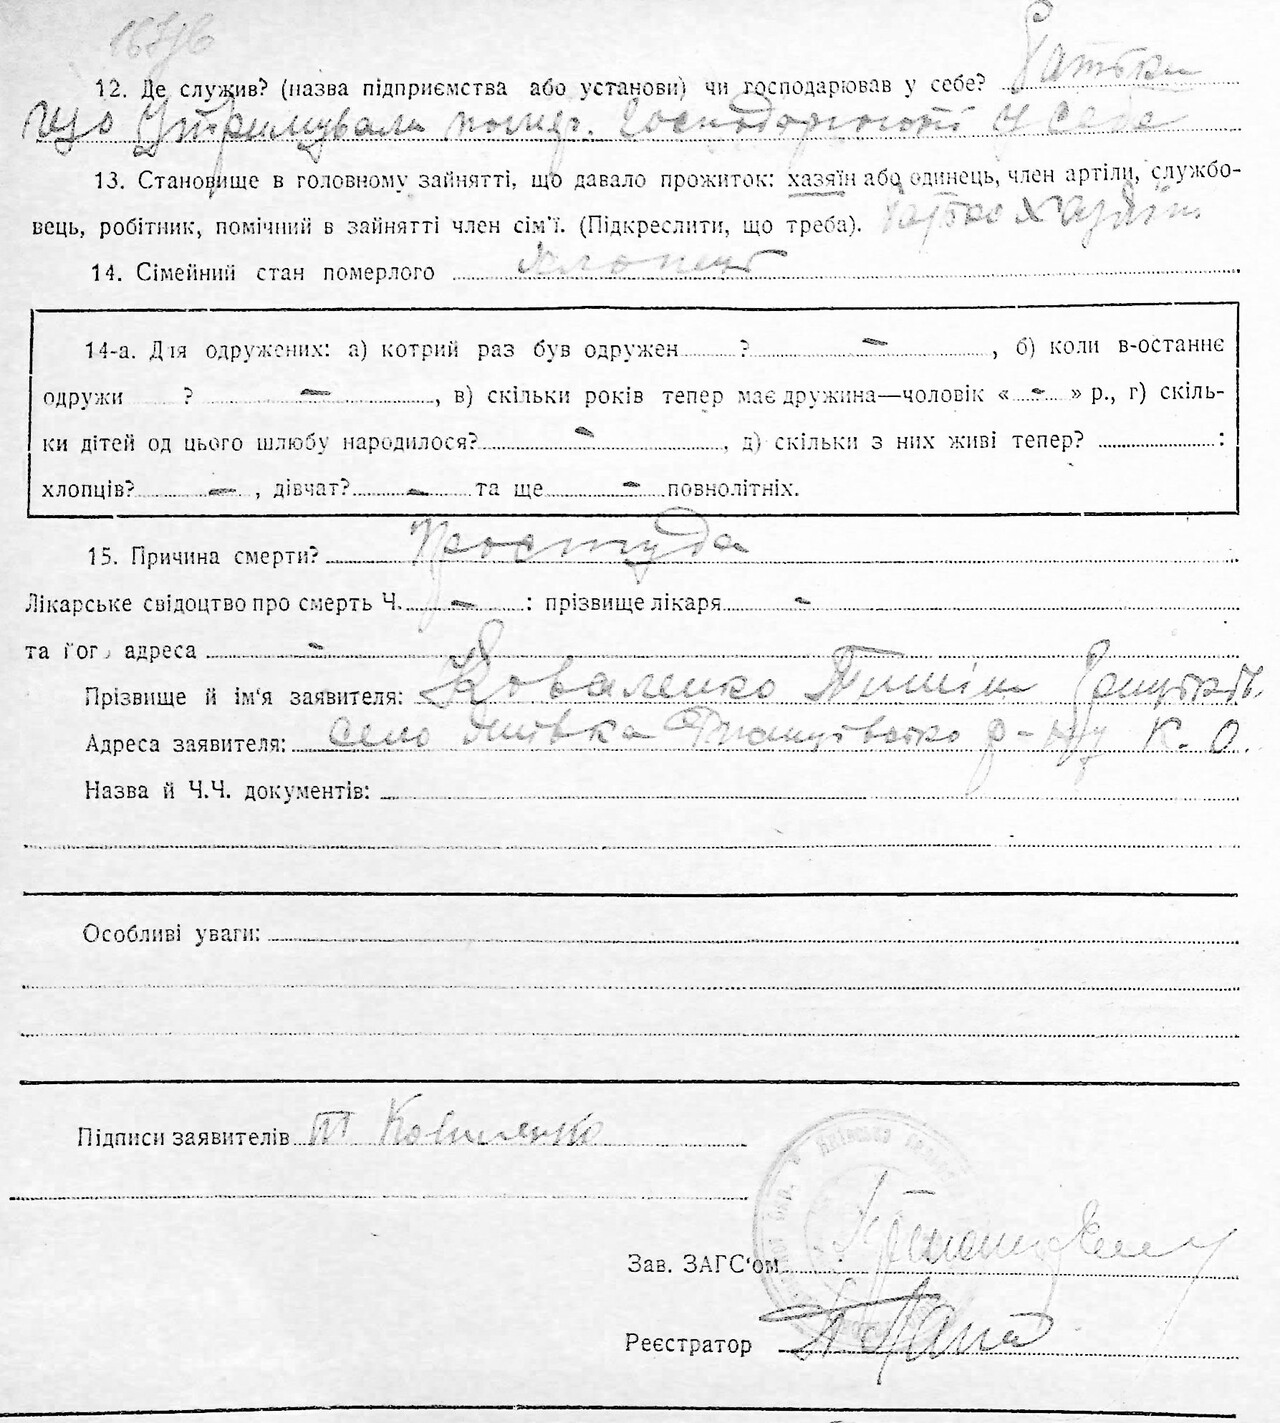 12. Де служив? (назва підприємства або установи) чи господарював у себе? Батьки
що утримували помер. господарюють у себе
13. Становище в головному зайнятті, що давало прожиток: хазяїн або одинець, член артіли, службо-
вець, робітник, помічний в зайнятті член сім'ї. (Підкреслити, що треба). батько хазяїн
14. Сімейний стан померлого хлопець
14-а. Для одружених: а) котрий раз був одружен ? — , б) коли в-останнє
одружи ? — , в) скільки років тепер має дружина—чоловік « - » р., г) скіль-
ки дітей од цього шлюбу народилося? - , д) скільки з них живі тепер? :
хлопців? — , дівчат? - та ще - повнолітніх.
15. Причина смерти? Простуда
Лікарське свідоцтво про смерть Ч. — : прізвище лікаря -
та його адреса -
Прізвище й ім'я заявителя: Коваленко
Адреса заявителя: село р-ну К. О.
Назва й Ч.Ч. документів:
Особливі уваги:
Підписи заявителів Т Коваленко
Зав. ЗАГС'ом
Реєстратор